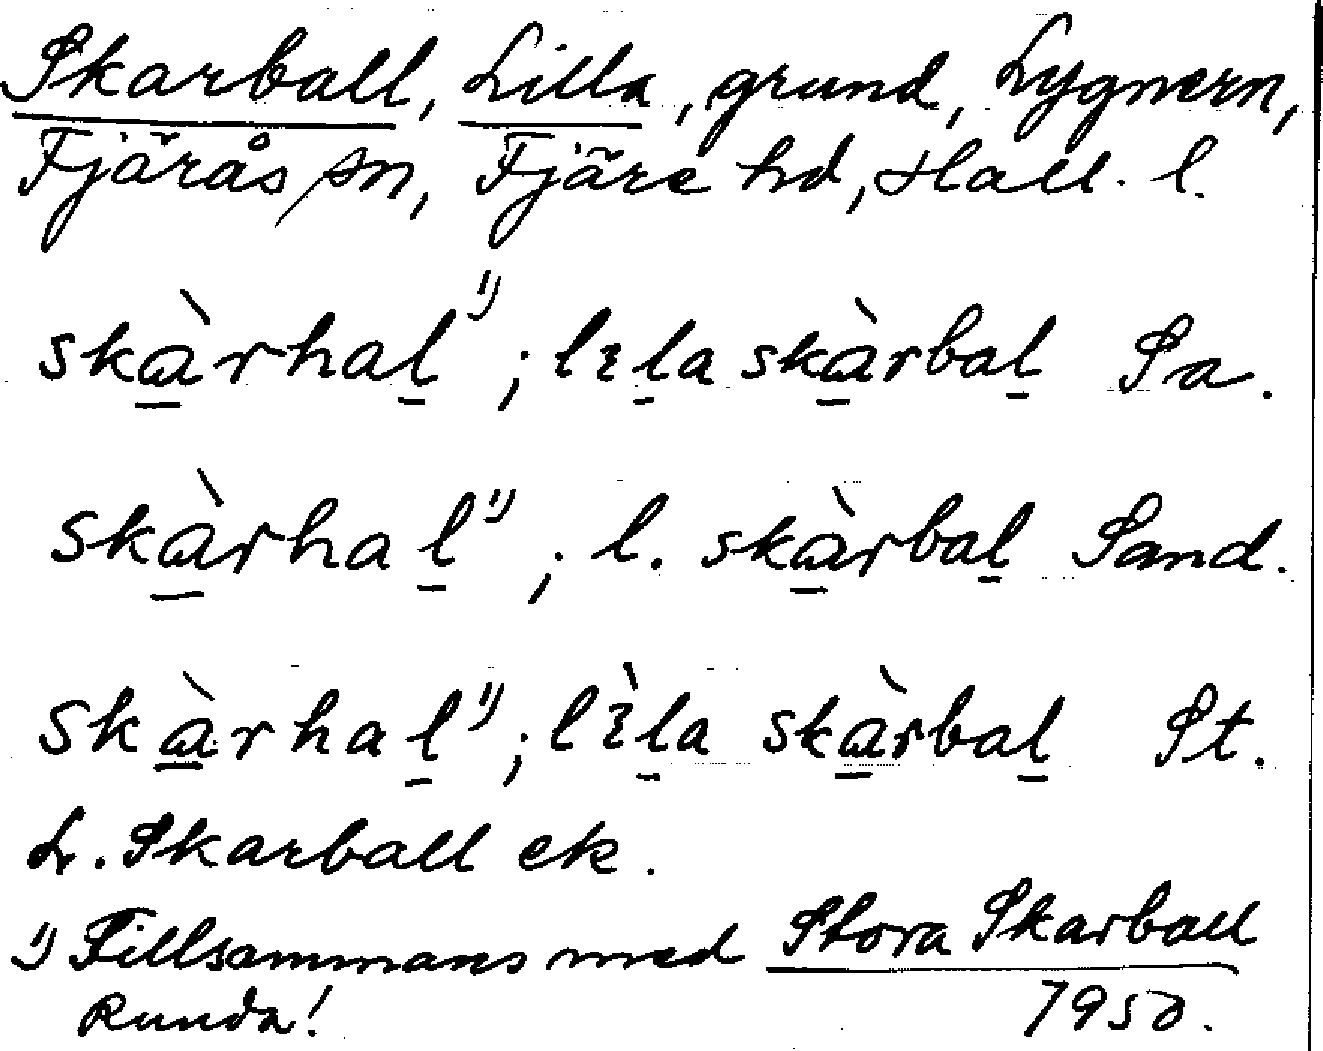 Skarball, Lilla, grund, Lygnern,
Fjärås sn, Fjäre hd, Hall. l.
skàrhal ¹); lɩla skàrbal Sa.
skàrhal ¹); l. skàrbal Sand.
skàrhal ¹); lɩ̀la skàrbal St.
L. Skarball ek.
¹) Tillsammans med Stora Skarball
Runda! 1950.